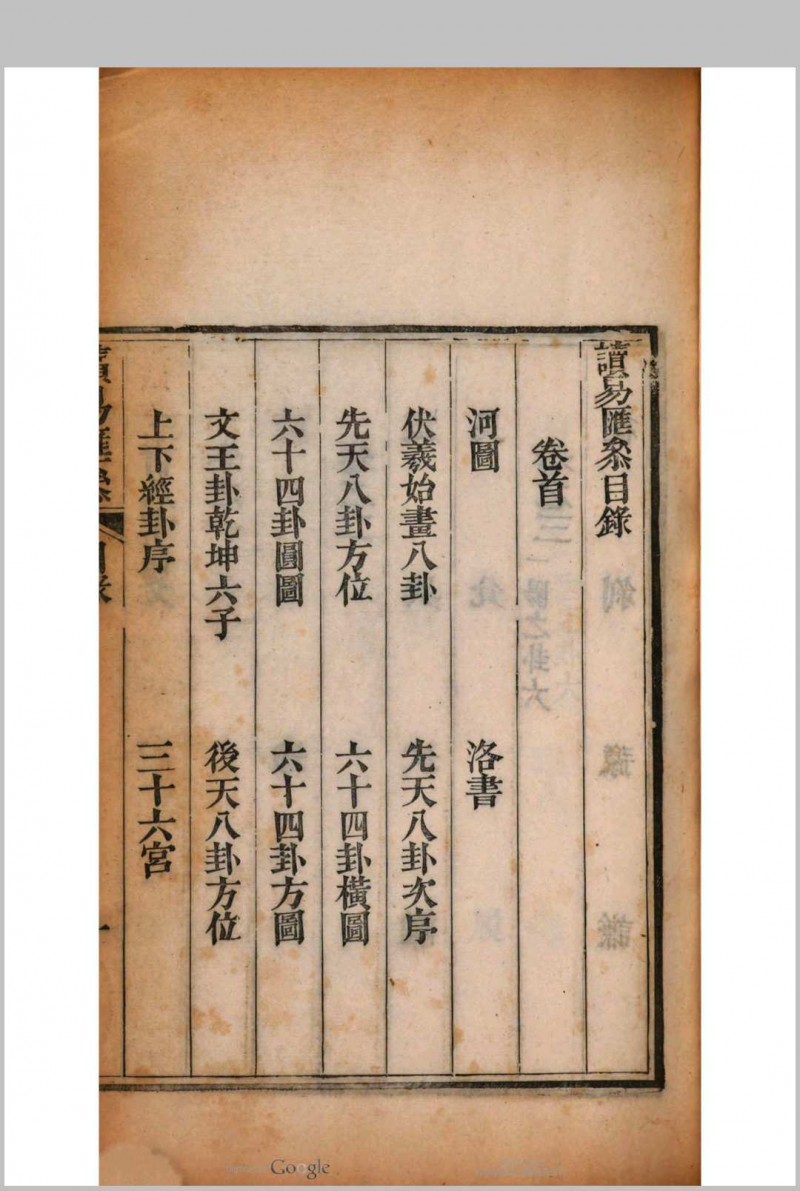 讀易匯叅目錄
卷首
河圖 洛書
伏羲始畫八卦 先天八卦次序
先天八卦方位 六十四卦橫圖
六十四卦圓圖 六十四卦方圖
文王卦乾坤六子 後天八卦方位
上下經卦序 三十六宮
讀易匯叅 目錄 一
Google